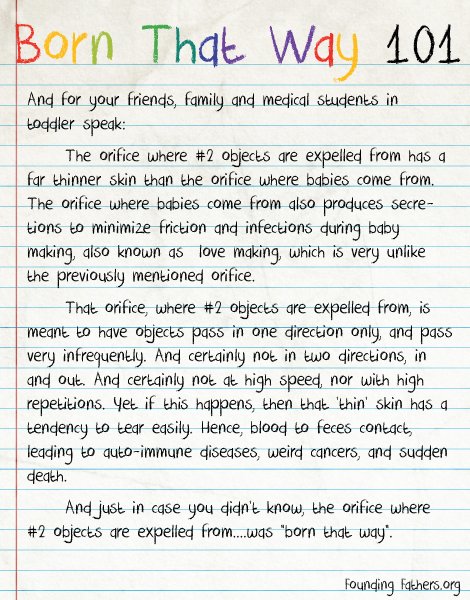 Born That Way 101
And for your friends, family and medical students in
toddler speak:
The orifice where #2 objects are expelled from has a
far thinner skin than the orifice where babies come from.
The orifice where babies come from also produces secre-
tions to minimize friction and infections during baby
making, also known as love making, which is very unlike
the previously mentioned orifice.
That orifice, where #2 objects are expelled from, is
meant to have objects pass in one direction only, and pass
very infrequently. And certainly not in two directions, in
and out. And certainly not at high speed, nor with high
repetitions. Yet if this happens, then that 'thin' skin has a
tendency to tear easily. Hence, blood to feces contact,
leading to auto-immune diseases, weird cancers, and sudden
death.
And just in case you didn't know, the orifice where
#2 objects are expelled from....was "born that way".
Founding Fathers.org